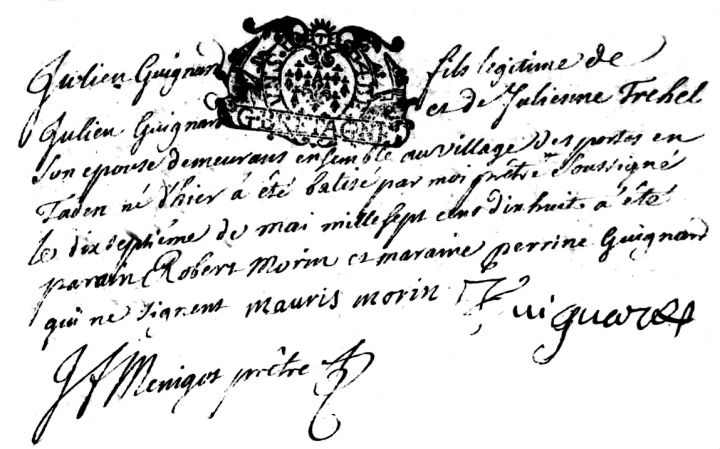 Julien Guignard fils legitime de
Julien Guignard et de Julienne Trehel
G. BRETAGNE
son epouse demeurans ensemble au village des portes en
Taden né d'hier à été batisé par moi prêtre soussigné
le dix septiéme de mai mille sept cens dix huit à été
parain Robert Morin et maraine perrine Guignard
qui ne signent mauris morin J Guignard
J f Menigot prêtre